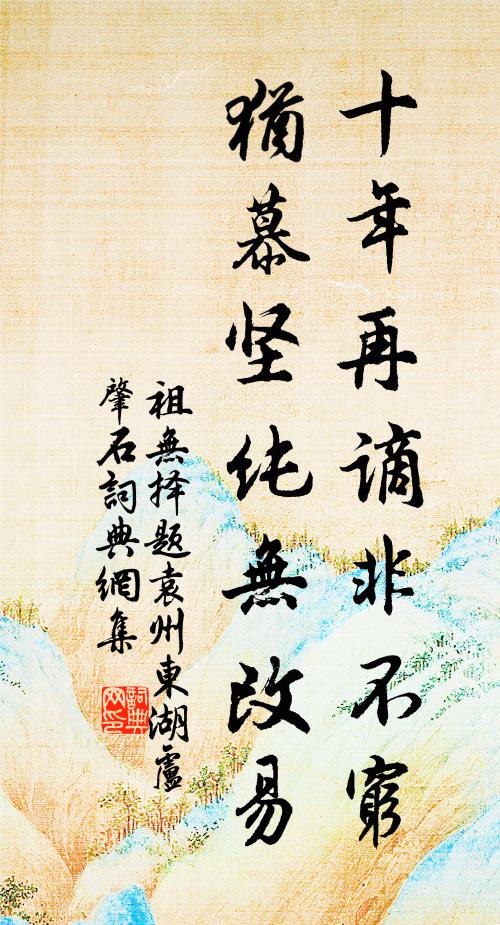 十年再谪非不窮
猶慕坚纯無改易
祖無择题袁州東湖盧
肇石詞典網集
詞典網印